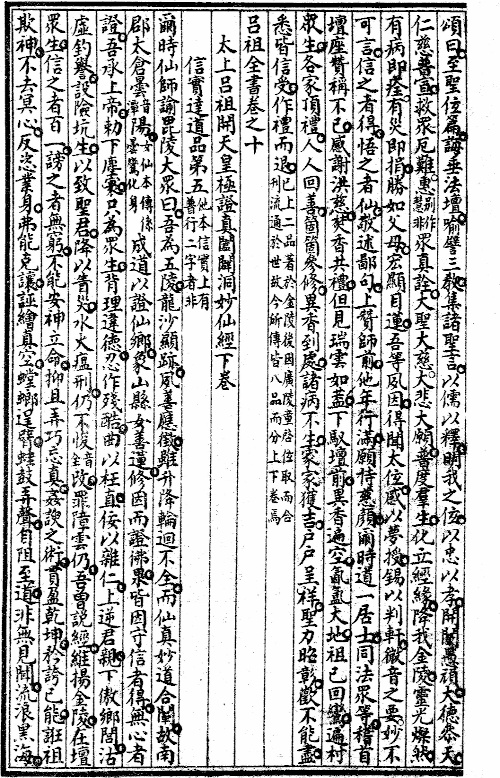 頌曰至聖位篇誨垂法壇喻譬三教集諸聖言以儒以釋明我之位以忠以孝開闡愚頑大德參天
仁慈普宣救眾厄難惠別作慧非眾真詮大聖大慈大悲大願普度羣生化立經緣降我金陵靈光燦然
有病即痊有災即捐勝如父母宏顯目蓮吾等夙因得聞太位感以夢授錫以判軒微音之要妙不
可言信之者得悟之者仙敬述鄙句上贊師前他年行滿願侍慈顏爾時道一居士司法眾等稽首
壇座贊稱不已感謝洪慈焚香共禮但見瑞雲如蓋下馭壇前異香遍空氤氳大地祖已回鸞遍村
眾生各家頂禮人人回善箇箇參修異香到處諸病不生家家獲吉戶戶呈祥聖力昭彰歡不能盡
悉皆信受作禮而退已上二品著於金陵後因廣陵童啓位取而合刊流通於世故今所傳皆八品而分上下卷焉
呂祖全書卷之十
太上呂祖開天皇極證真闡闢洞妙仙經下卷
信實達道品第五他本信實上有普行二字者非
爾時仙師諭毘陵大眾曰吾為五陵龍沙顯跡夙善應徵雖升降輪迴不全而仙真妙道合闡故南
郡太倉曇音潭陽女仙本傳係曇鸞化身成道以證仙鄉象山縣女善蓮修因而證佛果皆因守信者得無心者
證吾承上帝勅下塵寰只為眾生背理違德忍作殘酷曲以枉直佞以雜仁上逆君親下傲鄉閭沽
虛釣譽設險坑生以致聖君降以眚災水火瘟刑仍不悛音改罪障雲仍吾曾說經維揚金陵在壇
眾生信之者百一謗之者無窮不能安神立命抑且弄巧忘真姦諛之術貫盈乾坤矜誇己能誑祖
欺神不去冥心反恣業身弗能克讓誣繪真空螳螂逞臂蛙鼓弄聲自阻至道非無見聞流浪黑海